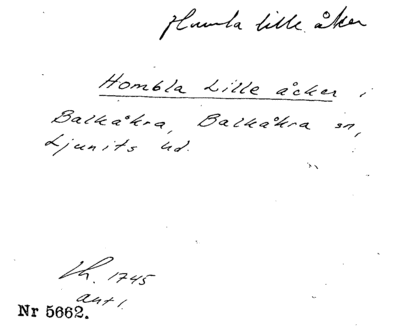 Humla lille åker
Hombla Lille åcker i
Balkåkra, Balkåkra sn,
Ljunits hd.
Lh. 1745
ant 1.
Nr 5662.